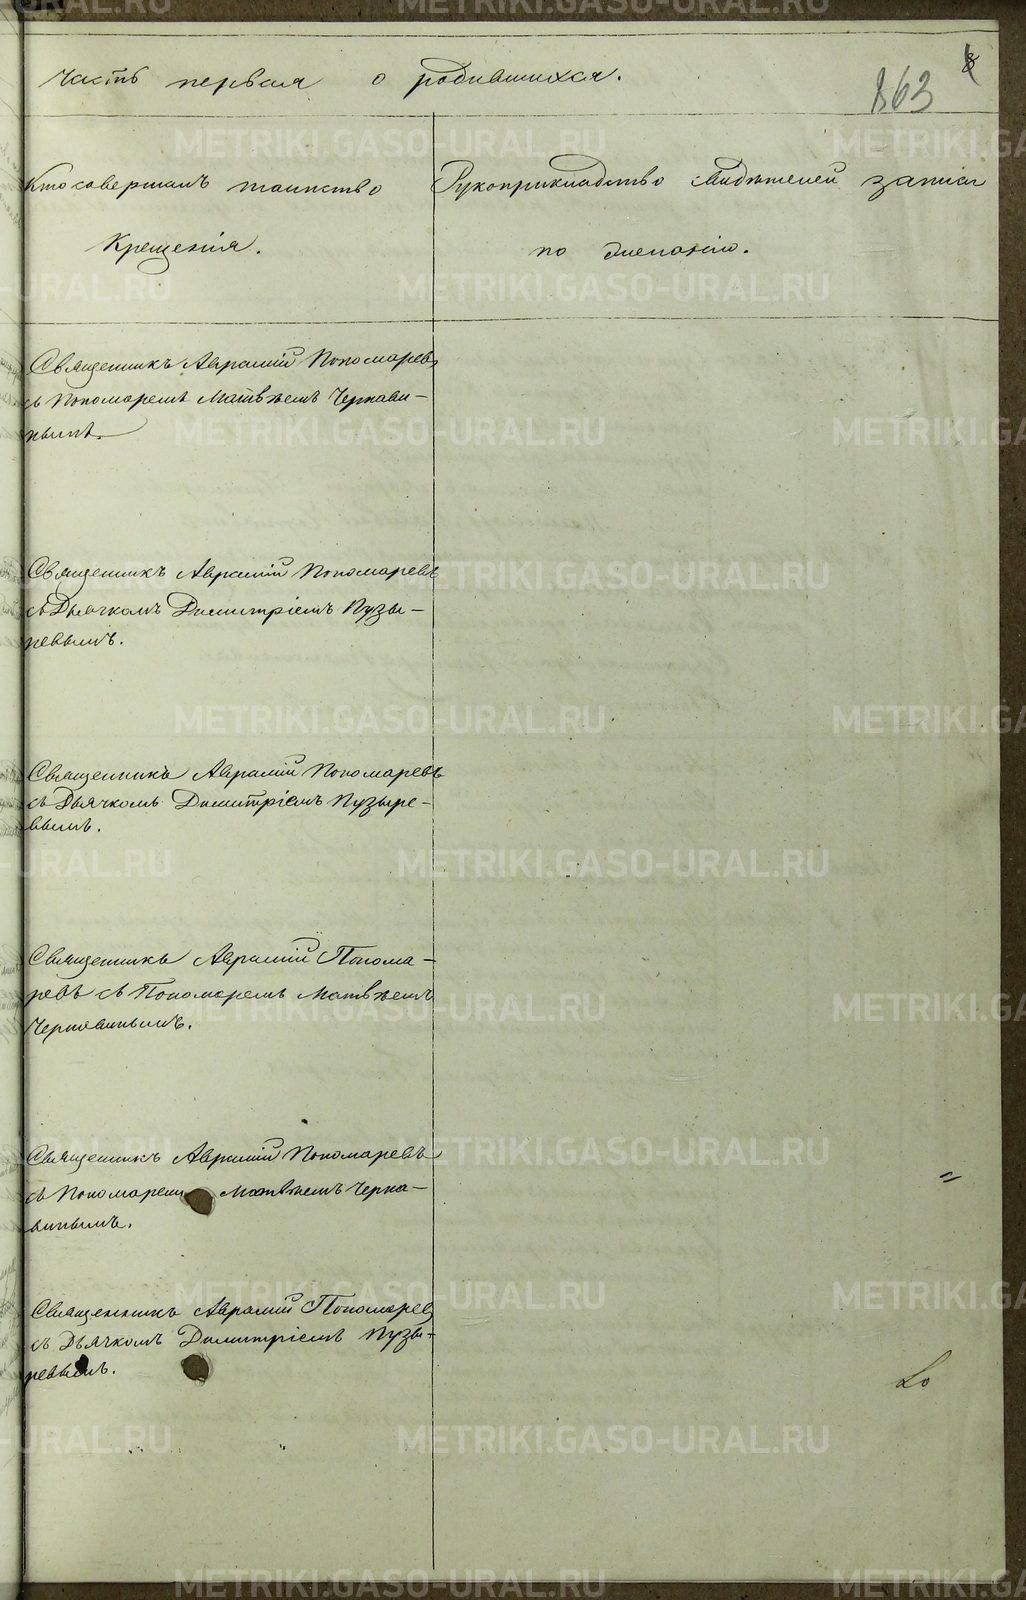 Часть первая о родившихся.
863
Кто совершалъ таинство
Крещенія.
Рукоприкладство свидѣтелей записи
по желанію.
Священникъ Аврамій Пономаревъ
съ Пономаремъ Матвѣемъ Чернави-
нымъ.
Священникъ Аврамій Пономаревъ
съ Дьячкомъ Димитріемъ Пузы-
ревымъ.
Священникъ Аврамій Пономаревъ
съ Дьячкомъ Димитріемъ Пузыре-
вымъ.
Священникъ Аврамій Понома-
ревъ съ Пономаремъ Матвѣемъ
Чернавинымъ.
Священникъ Аврамій Пономаревъ
съ Пономаремъ Матвѣемъ Черна-
винымъ.
Священникъ Аврамій Пономаревъ
съ Дьячкомъ Димитріемъ Пузы-
ревымъ.
METRIKI.GASO-URAL.RU